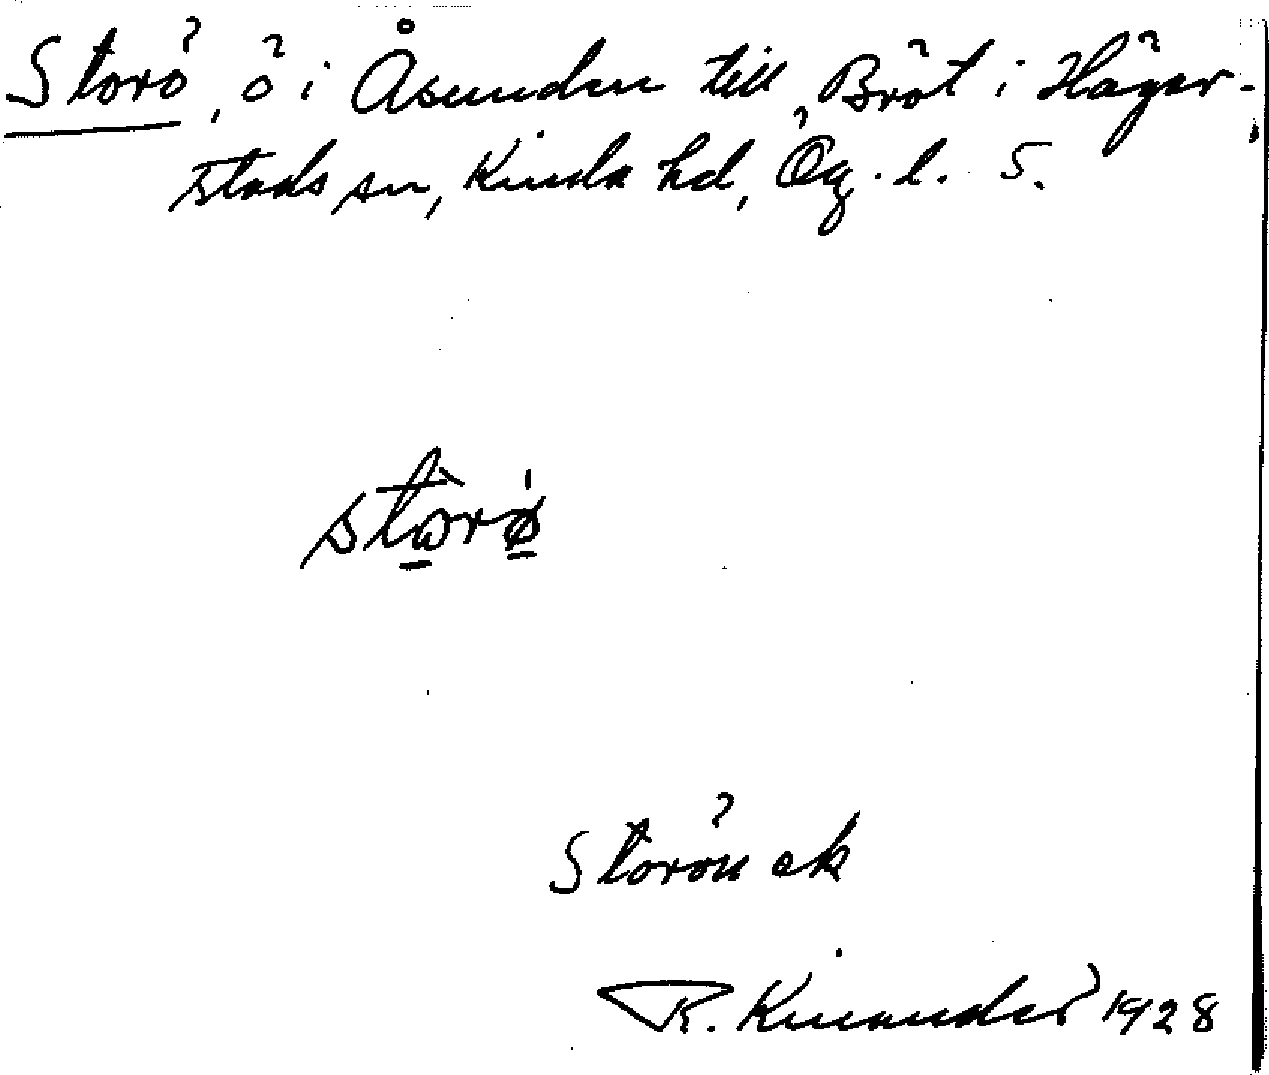 Storö, ö i Åsunden till Bröt i Häger-
stads sn, Kinda hd, Ög. l. S.
storø
Storön ek
R. Kinander 1928